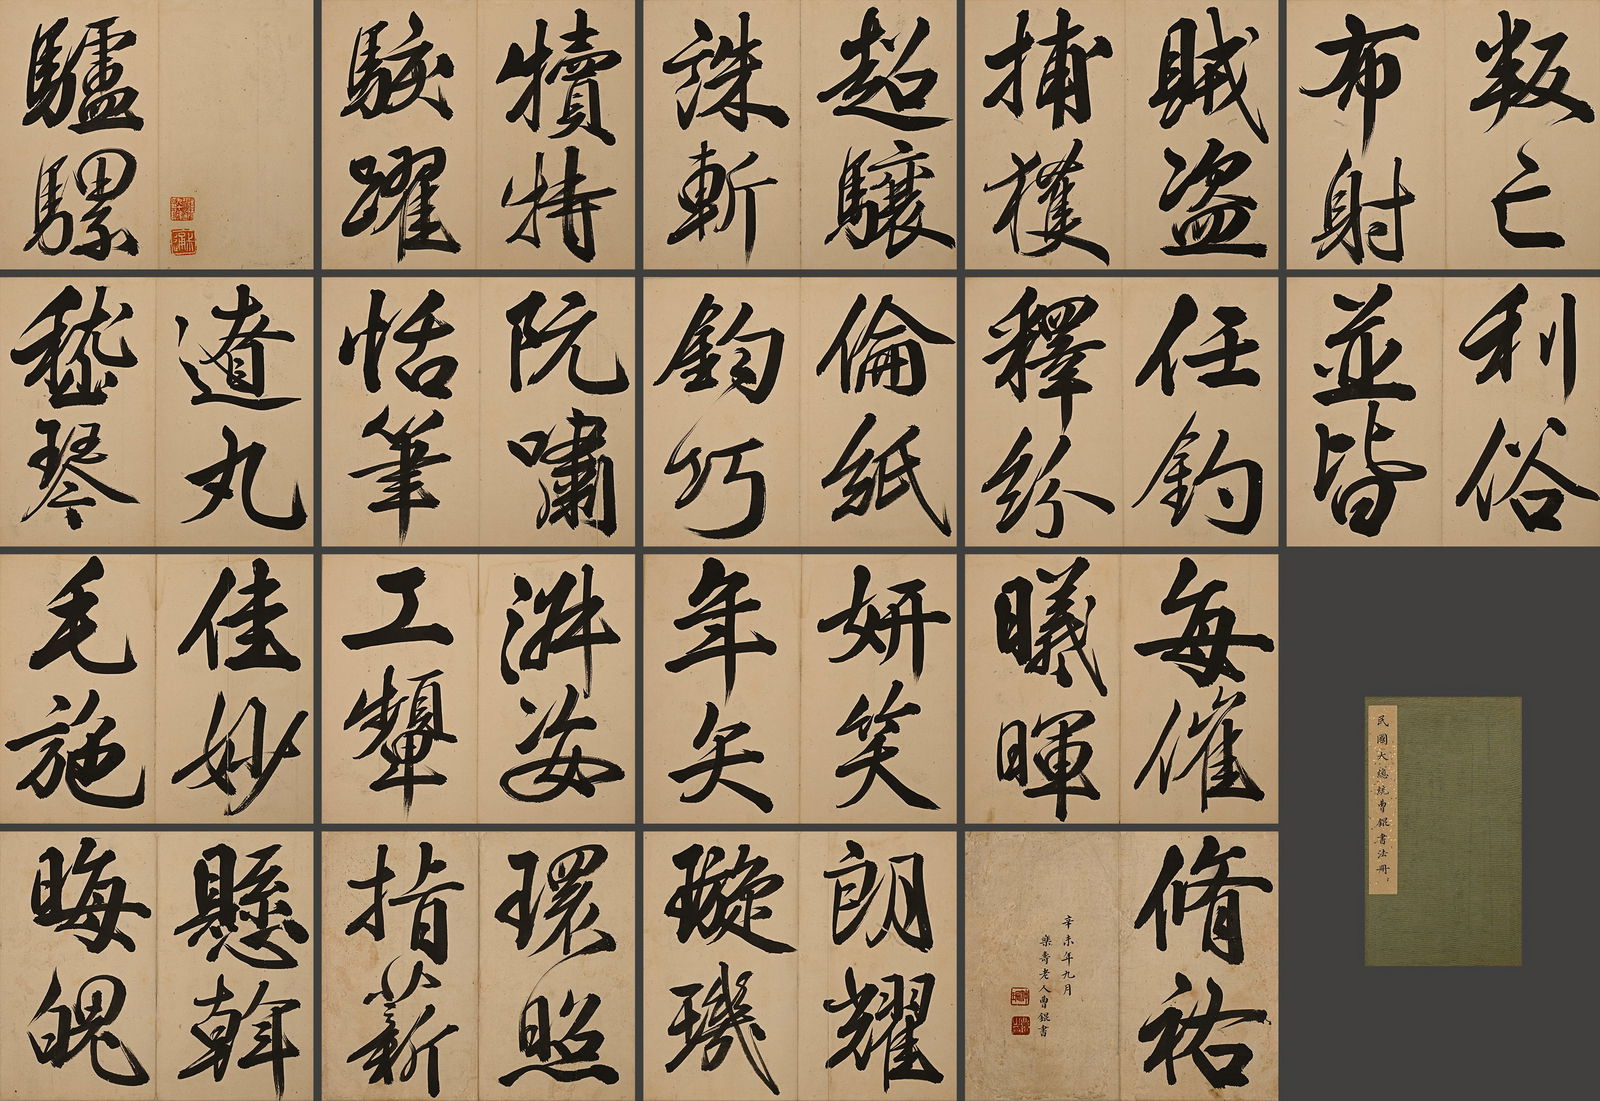 驢騾
犢特
駭躍
超驤
誅斬
賊盗
捕獲
叛亡
布射
遼丸
嵇琴
阮嘯
恬筆
倫紙
鈞巧
任釣
釋紛
利俗
並皆
佳妙
毛施
淑姿
工顰
妍笑
年矢
每催
曦暉
朗耀
璇璣
懸斡
晦魄
環照
指薪
脩祐
辛未年九月
樂壽老人曹錕書
民國大總統曹錕書法冊